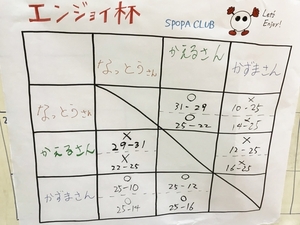 エンジョイ杯
SPOPA CLUB
Let's
Enjoy!
なっとうさん
かえるさん
かずまさん
なっとうさん
○
31-29
○
25-22
×
10-25
×
14-25
かえるさん
×
29-31
×
22-25
×
12-25
×
16-25
かずまさん
○
25-10
○
25-14
○
25-12
○
25-16